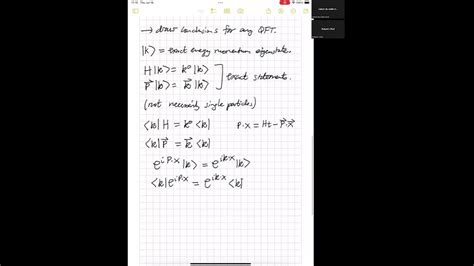 → draw conclusions for any QFT.
|k⟩ = exact energy momentum eigenstate.
H|k⟩ = k⁰|k⟩
P⃗|k⟩ = k⃗|k⟩ ] exact statements.
(not necessarily single particles)
⟨k|H = k⁰⟨k| P·x = Ht - P⃗·x⃗
⟨k|P⃗ = k⃗⟨k|
e^{iP·x}|k⟩ = e^{ik·x}|k⟩
⟨k|e^{iP·x} = e^{ik·x}⟨k|